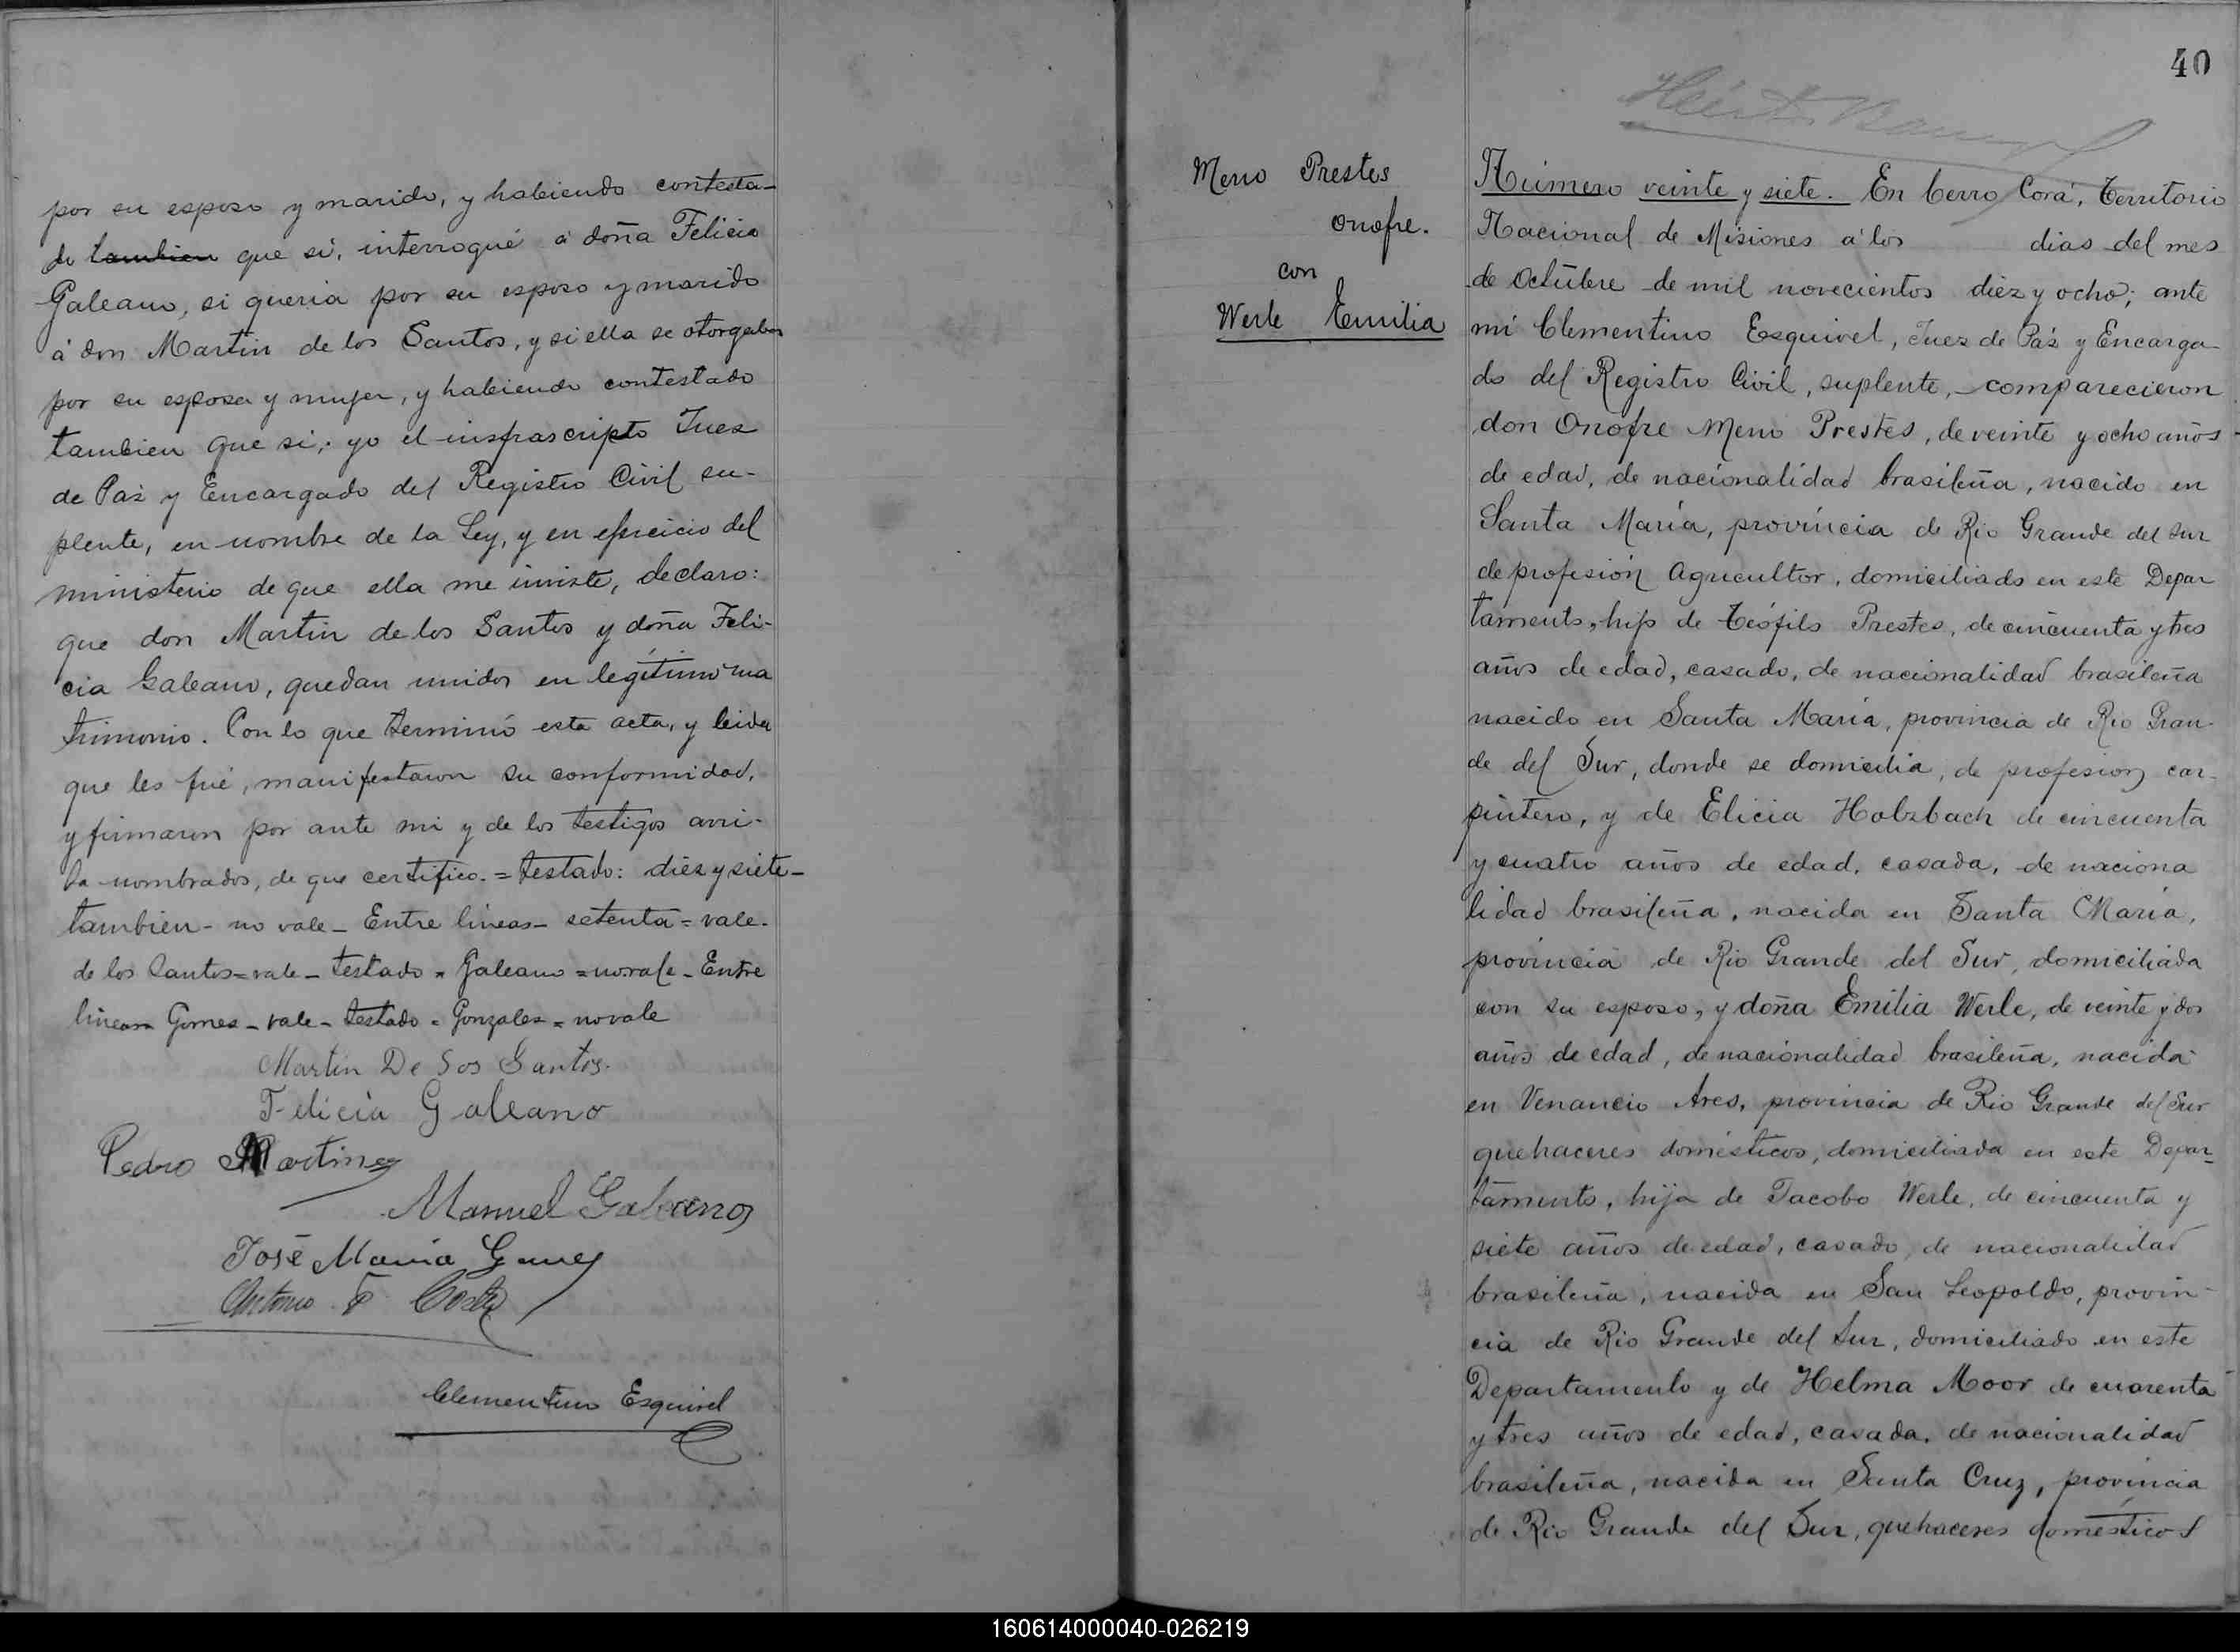 por su esposo y marido, y habiendo contesta-
do tambien que si, interrogué á doña Felicia
Galeano, si queria por su esposo y marido
á don Martin de los Santos, y si ella se otorgaba
por su esposa y mujer, y habiendo contestado
tambien que si; yo el insfrascripto Juez
de Paz y Encargado del Registro Civil su-
plente, en nombre de la Ley, y en ejercicio del
ministerio de que ella me inviste, declaro:
que don Martin de los Santos y doña Feli-
cia Galeano, quedan unidos en legítimo ma
trimonio. Con lo que terminó esta acta, y leida
que les fué, manifestaron su conformidad,
y firmaron por ante mi y de los testigos arri-
ba nombrados, de que certifico.= testado: diez y siete-
tambien- no vale- Entre lineas- setenta= vale.
de los Santos=vale- testado= Galeano=no vale- Entre
lineas= Gomes- vale- testado= Gonzales= no vale
Martin De Los Santos.
Felicia Galeano
Pedro Martinez
Manuel Galeano
José Maria Gomes
Antonio F. Costa
Clementino Esquivel
40
Meno Prestes
Onofre.
con
Werle Emilia
Número veinte y siete. En Cerro Corá, Territorio
Nacional de Misiones á los dias del mes
de Octubre de mil novecientos diez y ocho; ante
mi Clementino Esquivel, Juez de Páz y Encarga-
do del Registro Civil, suplente, comparecieron
don Onofre Meno Prestes, de veinte y ocho años
de edad, de nacionalidad brasileña, nacido en
Santa María, província de Rio Grande del Sur
de profesión Agricultor, domiciliado en este Depar
tamento, hijo de Teófilo Prestes, de cincuenta y tres
años de edad, casado, de nacionalidad brasileña
nacido en Santa María, provincia de Rio Gran-
de del Sur, donde se domicilia, de profesion car-
pintero, y de Elicia Holzbach de cincuenta
y cuatro años de edad, casada, de naciona
lidad brasileña, nacida en Santa María,
província de Rio Grande del Sur, domiciliada
con su esposo, y doña Emilia Werle, de veinte y dos
años de edad, de nacionalidad brasileña, nacida
en Venancio Ares, provincia de Rio Grande del Sur
quehaceres domésticos, domiciliada en este Depar-
tamento, hija de Jacobo Werle, de cincuenta y
siete años de edad, casado, de nacionalidad
brasileña, nacida en San Leopoldo, provin-
cia de Rio Grande del Sur, domiciliado en este
Departamento y de Helma Moor de cuarenta
y tres años de edad, casada, de nacionalidad
brasileña, nacida en Santa Cruz, província
de Rio Grande del Sur, quehaceres domésticos
160614000040-026219